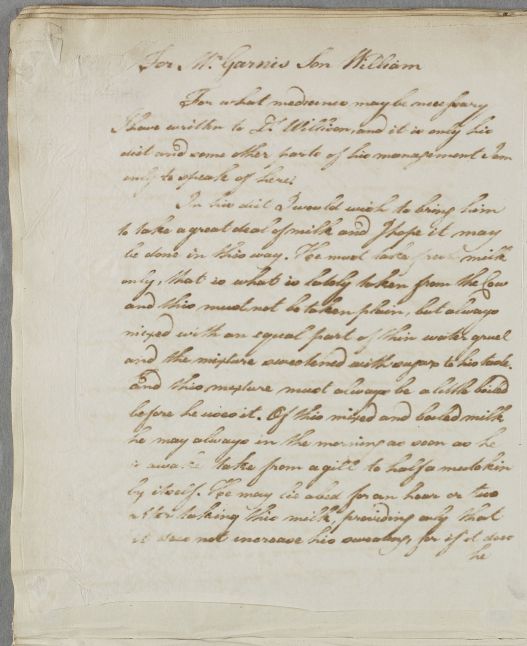 For Mr. Garnies Son William
For what medicines may be necessary
I have written to Dr. Willison, and it is only his
diet and some other parts of his management I am
only to speak of here.
In his diet I would wish to bring him
to take a great deal of milk and I hope it may
be done in this way. He must take fresh milk
only, that is what is lately taken from the Cow
and this must not be taken plain, but always
mixed with an equal part of thin water gruel
and the mixture sweetened with sugar to his taste.
And this mixture must always be a little boiled
before he uses it. Of this mixed and boiled milk
he may always in the morning as soon as he
is awake take from a gill to half a mutchkin
by itself. He may lie abed for an hour or two
after taking this milk, providing only that
it does not increase his sweating, for if it does
he